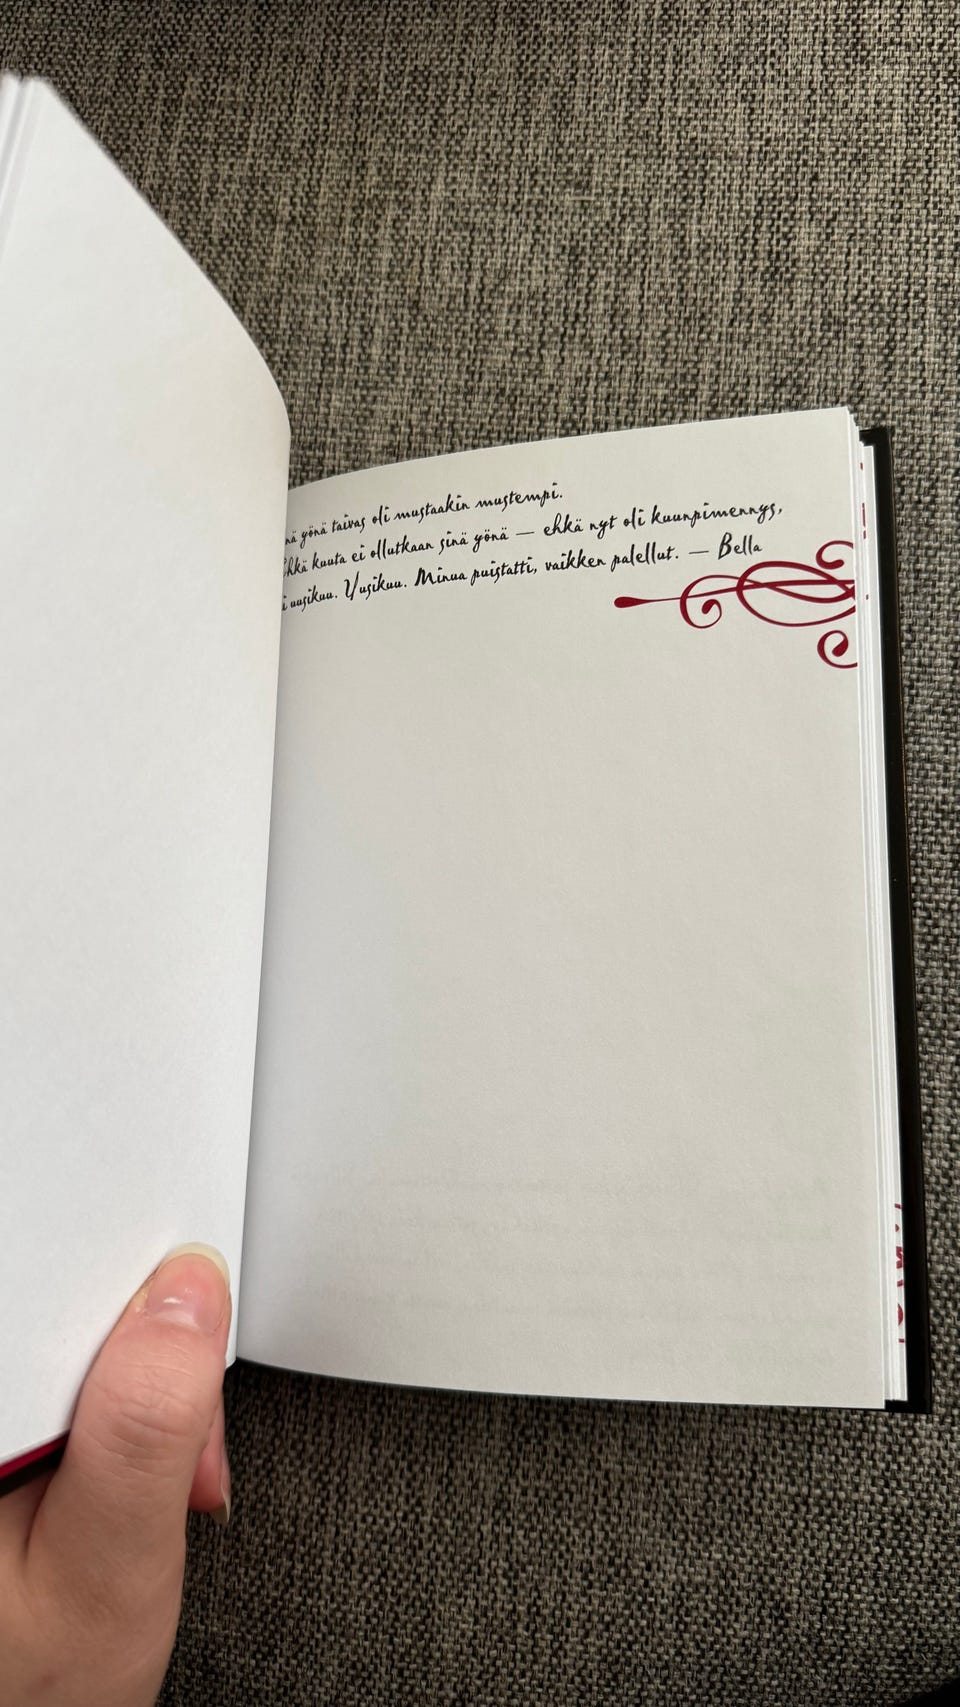 yönä taivas oli mustaakin mustempi.
Ehkä kuuta ei ollutkaan sinä yönä — ehkä nyt oli kuunpimennys,
uusikuu. Uusikuu. Minua puistatti, vaikken palellut. — Bella